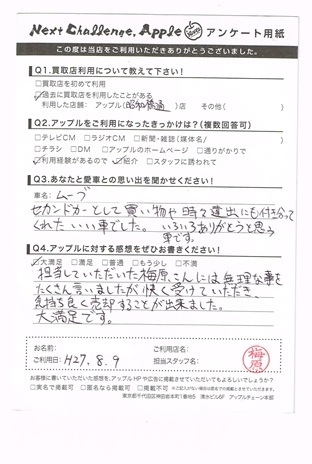 Next Challenge, Apple アンケート用紙
この度は当店をご利用いただきありがとうございました。
Q1.買取店利用について教えて下さい！
□買取店を初めて利用
☑過去に買取店を利用したことがある
利用した店舗： アップル(昭和橋通)店 その他( )
Q2.アップルをご利用になったきっかけは？(複数回答可)
□テレビCM □ラジオCM □新聞・雑誌(媒体名/ )
□チラシ □DM □アップルのホームページ □通りがかりで
☑利用経験があるので ☑紹介 □スタッフに誘われて
Q3.あなたと愛車との思い出を聞かせください！
車名：ムーブ
セカンドカーとして買い物や時々遠出にも付き合って
くれたいい車でした。いろいろありがとうと思う
車です。
Q4.アップルに対する感想をぜひお書きください！
☑大満足 □満足 □普通 □もう少し □不満
担当していただいた梅原さんには無理な事を
たくさん言いましたが快く受けていただき、
気持ち良く売却することが出来ました。
大満足です。
お名前： ご利用店名：
ご利用日：H27.8.9 担当スタッフ名： 梅原
お客様に書いていただいた感想を、アップルHPや広告に掲載させていただいてもよろしいでしょうか？
□実名で掲載可 □匿名なら掲載可 □掲載不可
東京都千代田区神田佐久間町1番地5 清水ビル6F アップルチェーン本部